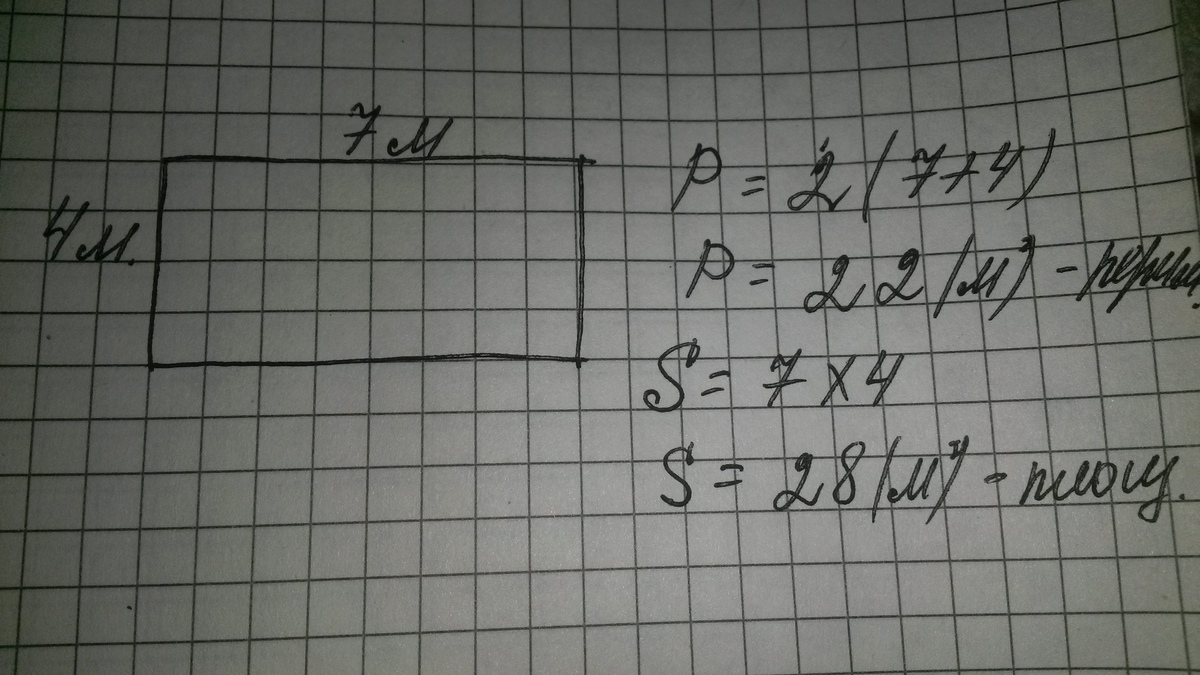 7 м
4 м.
P = 2 (7+4)
P = 22 (м²) - перим.
S = 7 x 4
S = 28 (м²) - площ.